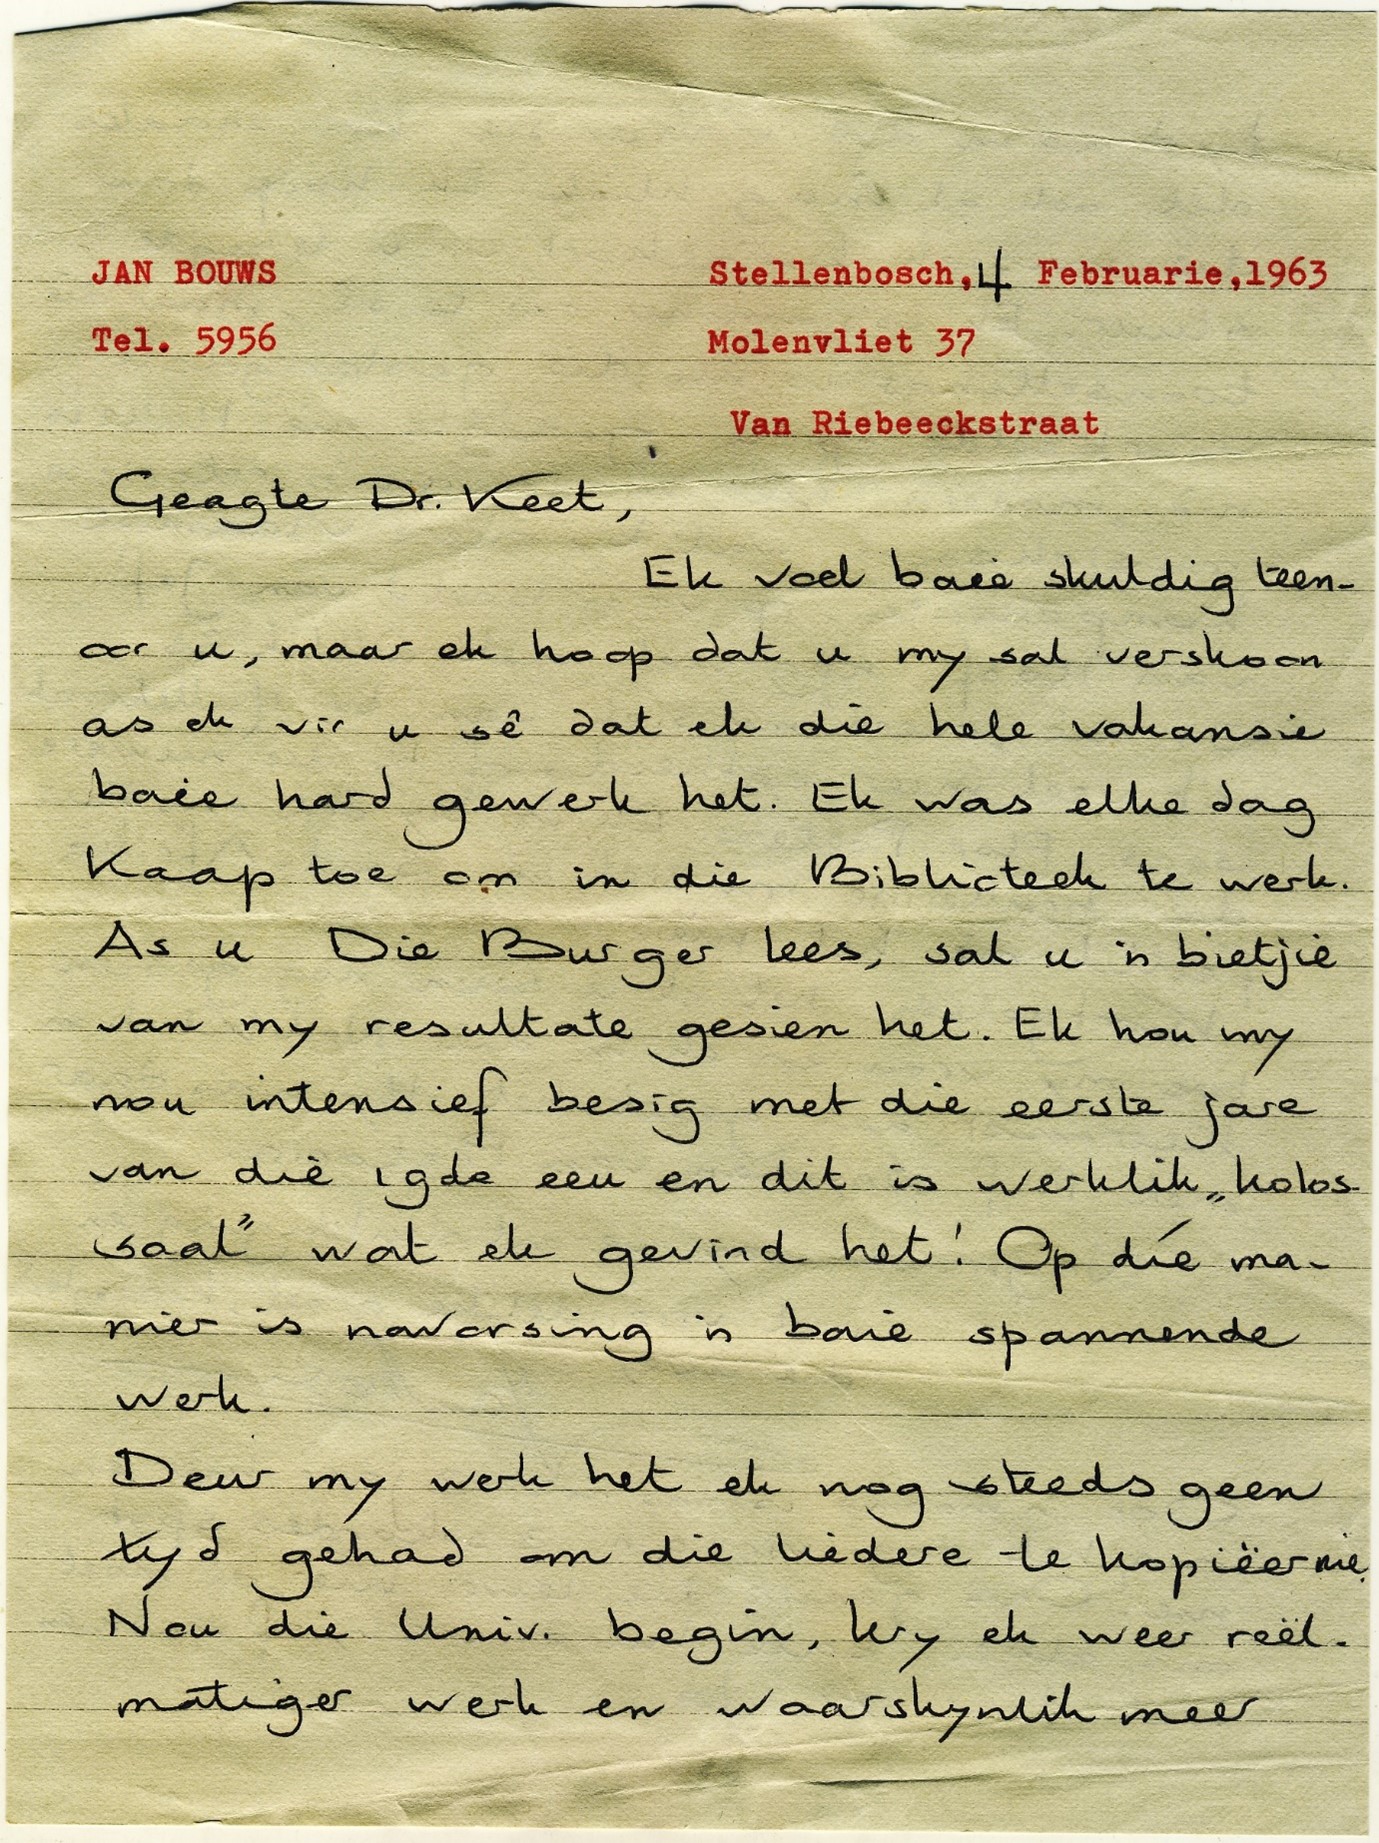 JAN BOUWS Stellenbosch, 4 Februarie, 1963
Tel. 5956 Molenvliet 37
Van Riebeeckstraat
Geagte Dr. Keet,
Ek voel baie skuldig teen-
oor u, maar ek hoop dat u my sal verskoon
as ek vir u sê dat ek die hele vakansie
baie hard gewerk het. Ek was elke dag
Kaap toe om in die Biblioteek te werk.
As u Die Burger lees, sal u 'n bietjie
van my resultate gesien het. Ek hou my
nou intensief besig met die eerste jare
van die 19de eeu en dit is werklik „kolos-
saal” wat ek gevind het! Op díe ma-
nier is navorsing 'n baie spannende
werk.
Deur my werk het ek nog steeds geen
tyd gehad om die liedere te kopiëer nie.
Nou die Univ. begin, kry ek weer reël-
matiger werk en waarskynlik meer